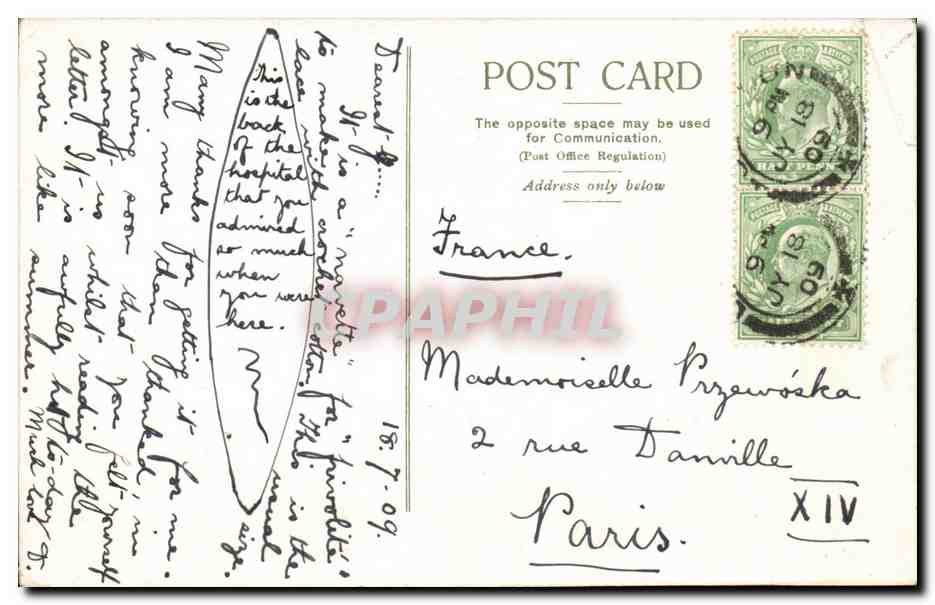 18.7.09.
Dearest G.....
It is a "navette" for "frivolité"
to make with crochet cotton. This is the
lace usual
size.
Many thanks for getting it for me.
I am more than thanked, in
knowing soon that you felt yourself
amongst us whilst reading the
letter. It is awfully hot to-day
more like summer. Much love D.
This
is the
back
of the
hospital
that you
admired
so much
when
you were
here.
POST CARD
The opposite space may be used
for Communication.
(Post Office Regulation)
Address only below
France.
Mademoiselle Przewóska
2 rue Danville
Paris.
XIV
POSTAGE
HALFPENNY
9 PM
JY 18
09
9 PM
JY 18
09
CPAPHIL